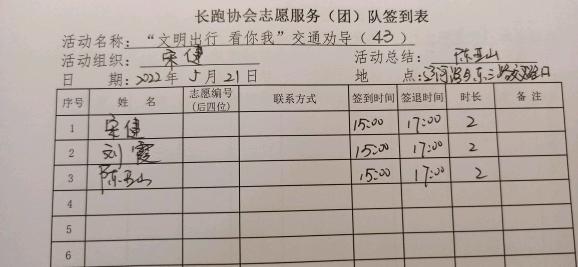 长跑协会志愿服务（团）队签到表
活动名称：“文明出行 看你我”交通劝导（43）
活动组织：宋健 活动总结：陈亚山
日 期：2022年5月21日 地 点：路与东三路交叉口
序号 姓 名 志愿编号（后四位） 联系方式 签到时间 签退时间 时长 备 注
1 宋健 15:00 17:00 2
2 刘霞 15:00 17:00 2
3 陈亚山 15:00 17:00 2
4
5
6